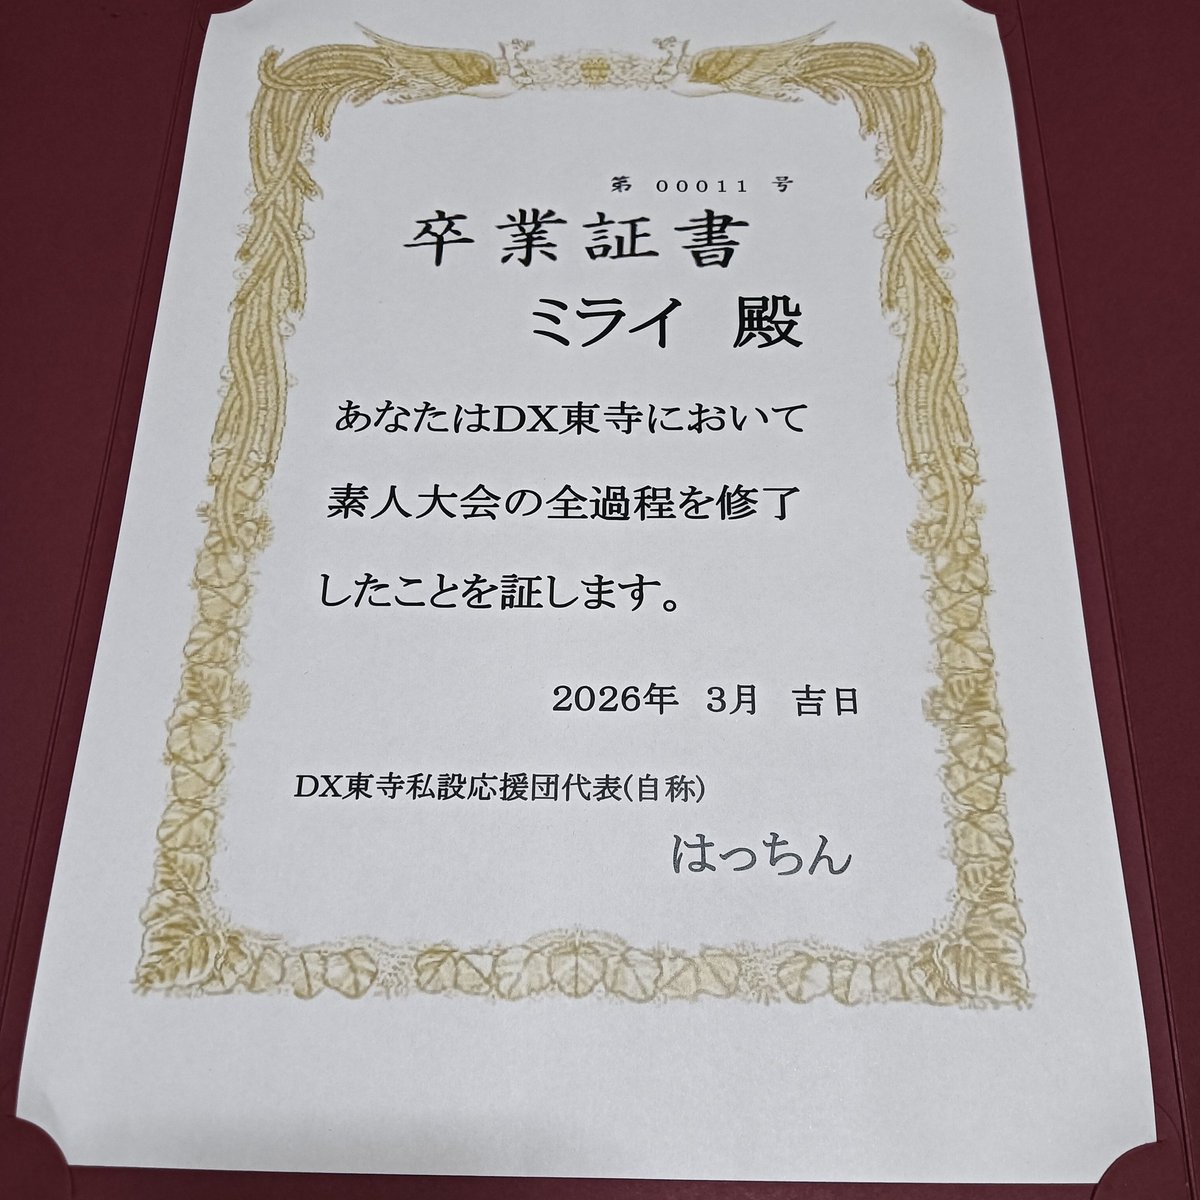 第 00011 号
卒業証書
ミライ 殿
あなたはDX東寺において
素人大会の全過程を修了
したことを証します。
2026年 3月 吉日
DX東寺私設応援団代表(自称)
はっちん